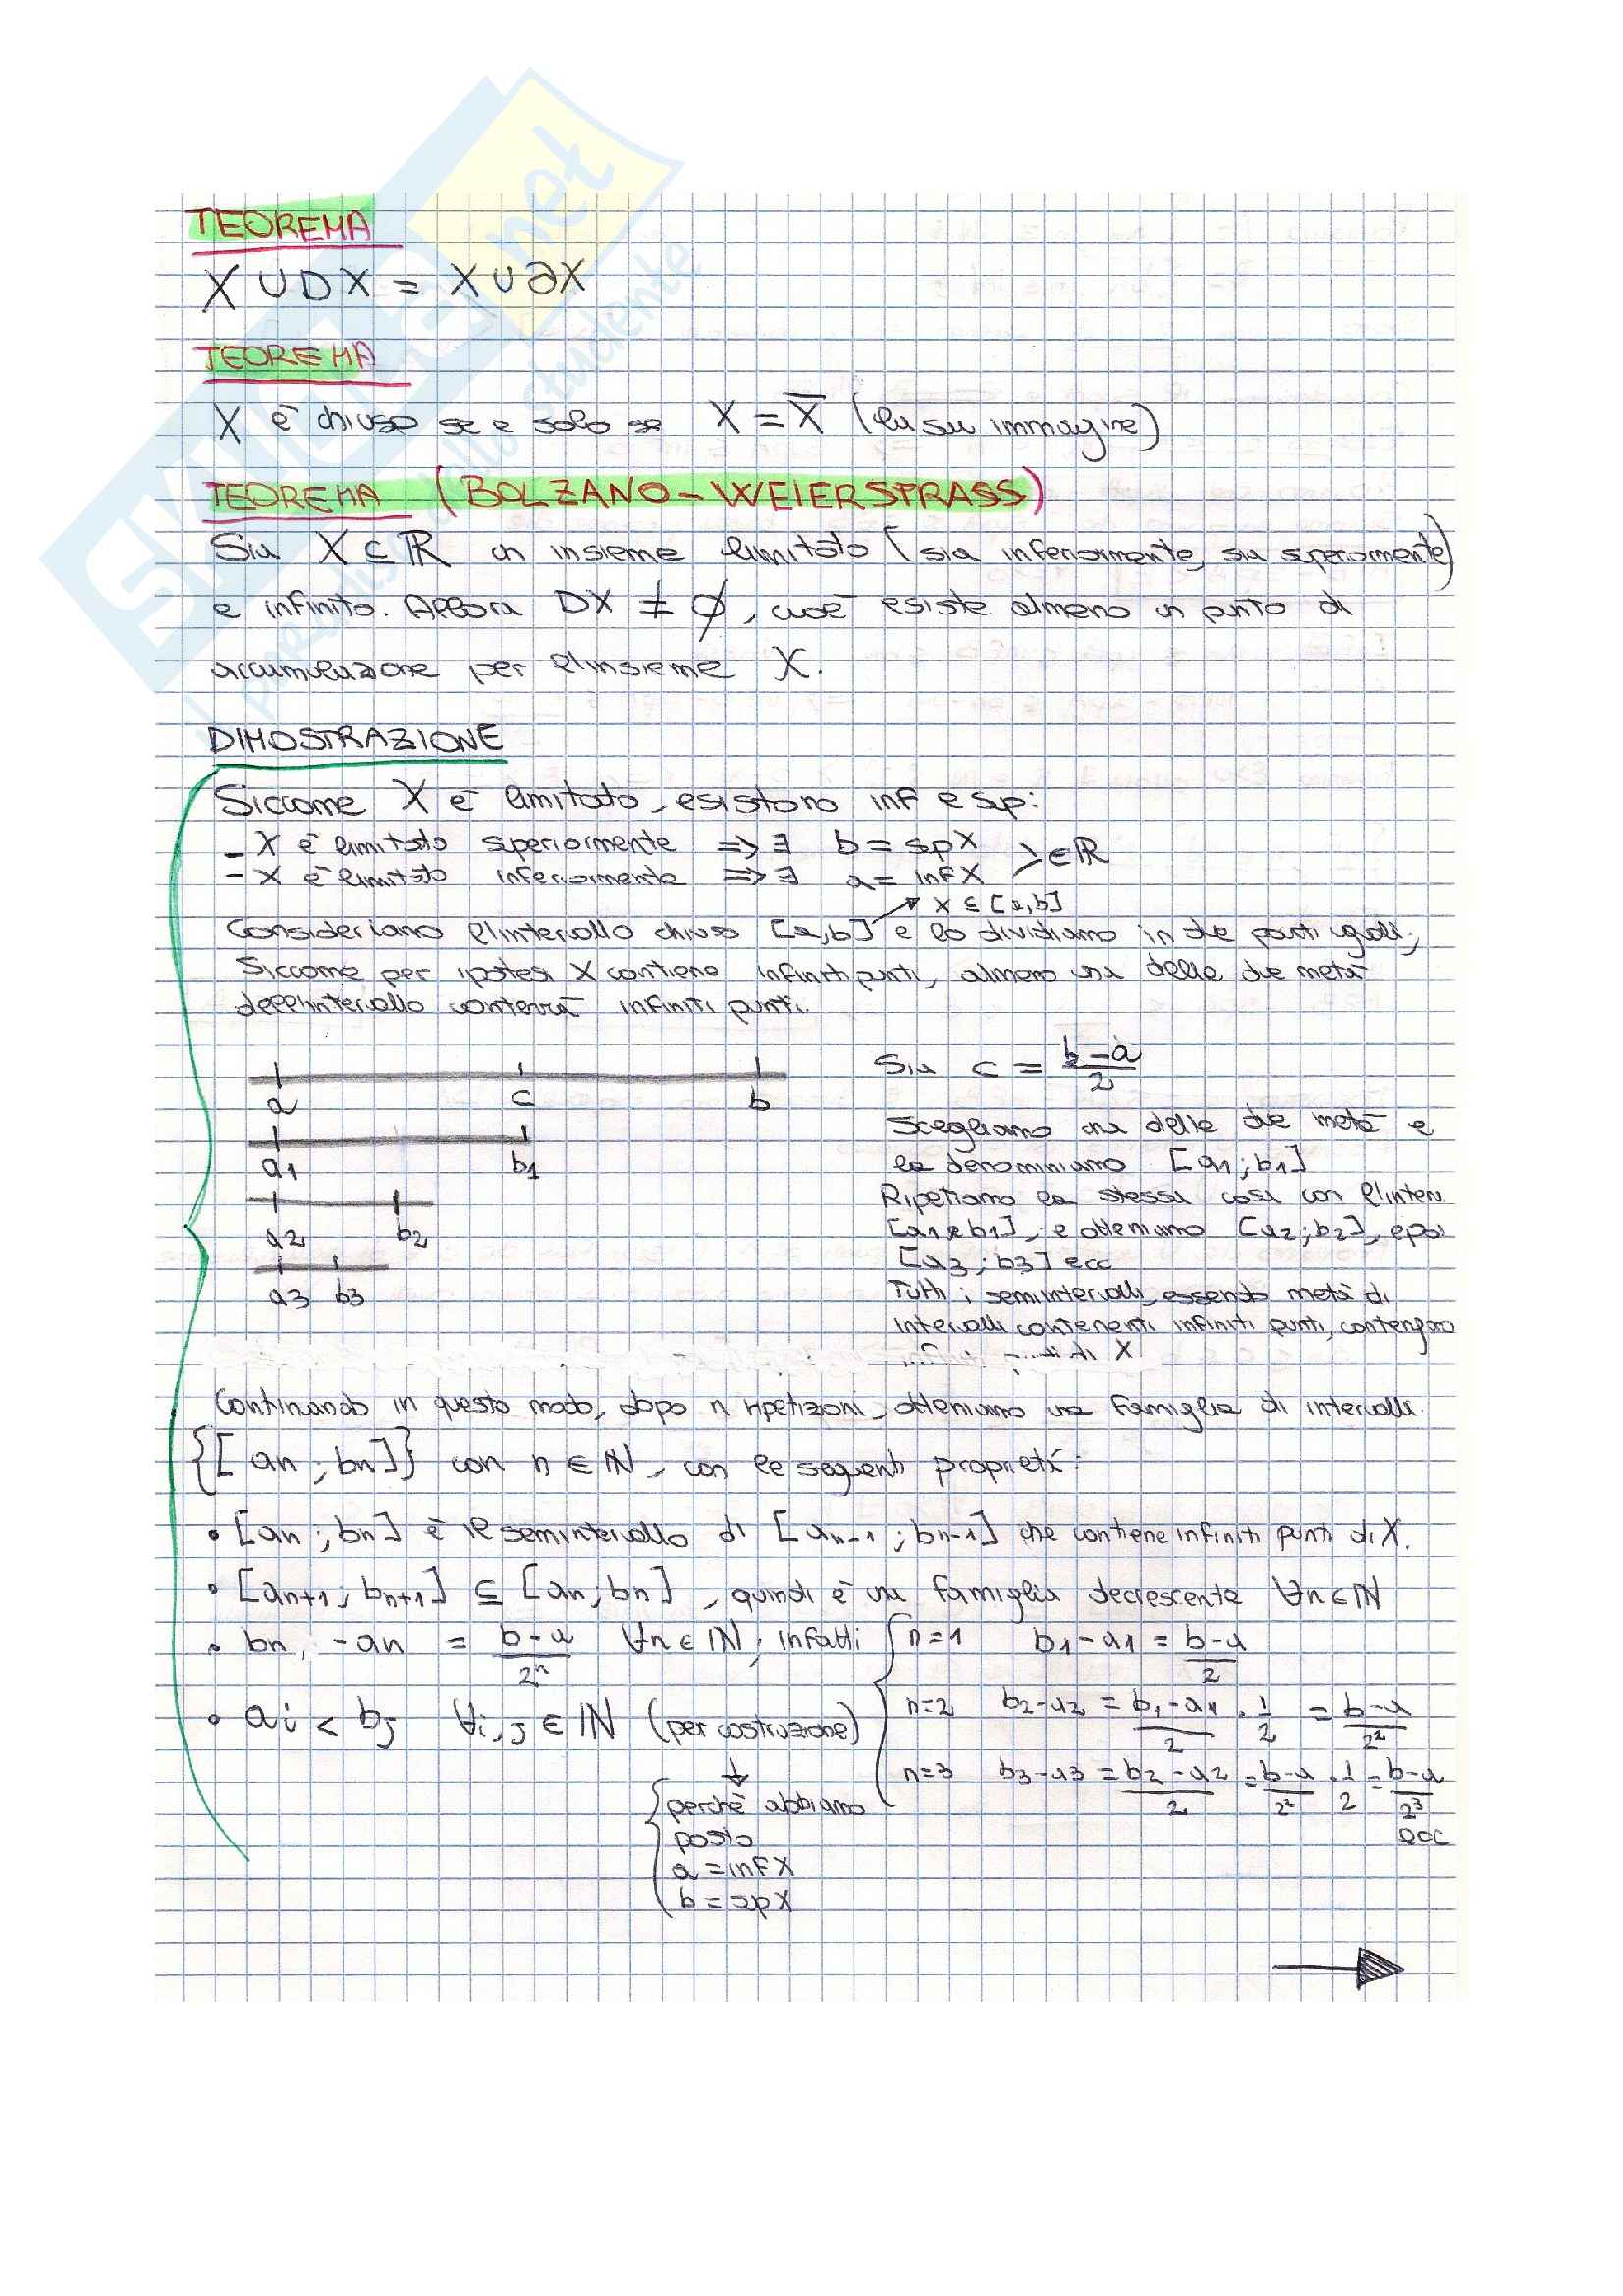 TEOREMA
X ∪ DX = X ∪ ∂X
TEOREMA
X è chiuso se e solo se X = X̅ (la sua immagine)
TEOREMA (BOLZANO-WEIERSTRASS)
Sia X ⊆ ℝ un insieme limitato (sia inferiormente, sia superiormente)
e infinito. Allora DX ≠ ∅, cioè esiste almeno un punto di
accumulazione per l'insieme X.
DIMOSTRAZIONE
Siccome X è limitato, esistono inf e sup:
- X è limitato superiormente => ∃ b = sup X
- X è limitato inferiormente => ∃ a = inf X > ∈ ℝ
X ⊆ [a,b]
Consideriamo l'intervallo chiuso [a,b] e lo dividiamo in due parti uguali;
Siccome per ipotesi X contiene infiniti punti, almeno una delle due metà
dell'intervallo conterrà infiniti punti.
a c b
a1 b1
a2 b2
a3 b3
Sia c = (b-a)/2
Scegliamo una delle due metà e
la denominiamo [a1;b1]
Ripetiamo la stessa cosa con l'interv
[a1,b1], e otteniamo [a2;b2], e poi
[a3;b3] ecc
Tutti i semintervalli, essendo metà di
intervalli contenenti infiniti punti, contengono
di X
Continuando in questo modo, dopo n ripetizioni, otteniamo una famiglia di intervalli
{[an;bn]} con n ∈ ℕ, con le seguenti proprietà:
• [an;bn] è il semintervallo di [an-1;bn-1] che contiene infiniti punti di X.
• [an+1;bn+1] ⊆ [an;bn], quindi è una famiglia decrescente ∀n ∈ ℕ
• bn - an = (b-a)/2ⁿ ∀n ∈ ℕ, infatti
n=1 b1-a1 = (b-a)/2
n=2 b2-a2 = (b1-a1)/2 · 1/2 = (b-a)/2²
n=3 b3-a3 = (b2-a2)/2 = (b-a)/2² · 1/2 = (b-a)/2³
ecc
• ai < bj ∀i,j ∈ ℕ (per costruzione)
perchè abbiamo
posto
a = inf X
b = sup X
SKUOLA.net
studente